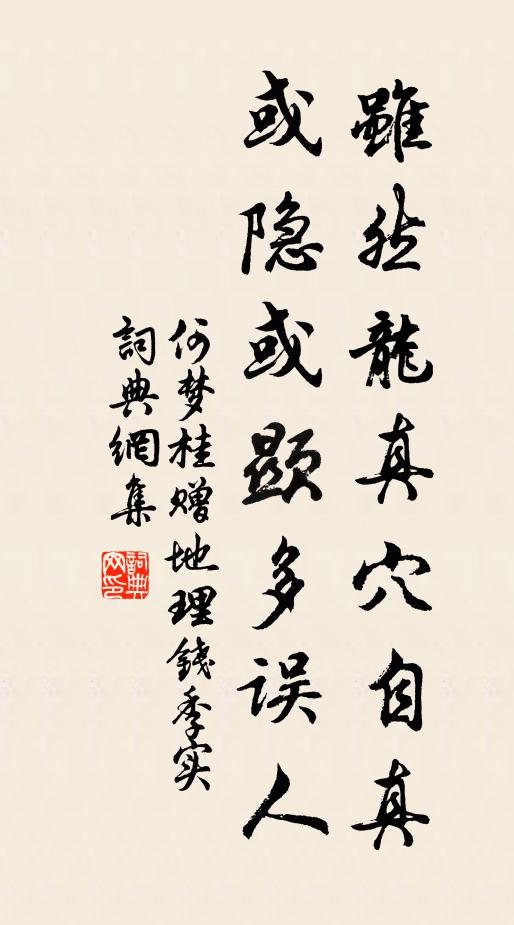 雖然龍真穴自真
或隐或顕多误人
何梦桂赠地理錢季实
詞典網集
詞典
网印